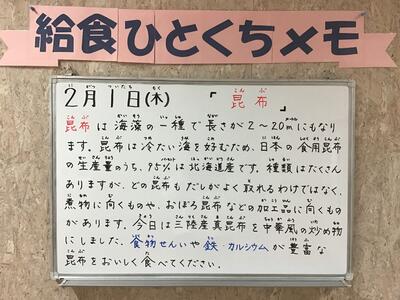 給食ひとくちメモ
2月1日(木) 「昆布」
昆布は海藻の一種で長さが2～20mにもなり
ます。昆布は冷たい海を好むため、日本の食用昆布
の生産量のうち、95％は北海道産です。種類はたくさん
ありますが、どの昆布もだしがよく取れるわけではなく、
煮物に向くものや、おぼろ昆布などの加工品に向くもの
があります。今日は三陸産真昆布を中華風の炒め物
にしました。食物せんいや鉄、カルシウムが豊富な
昆布をおいしく食べてください。